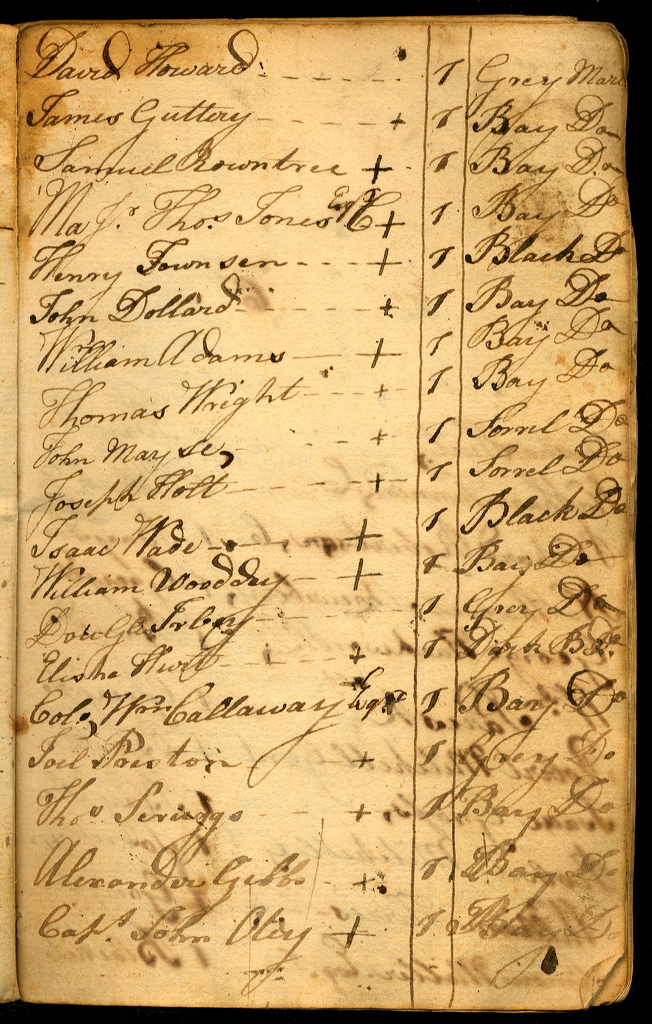 David Howard - - - - - 1 Grey Mare
James Guttery - - - - + 1 Bay Do
Samuel Rowntree + 1 Bay Do
Majr. Thos. Jones Esqr + 1 Bay Do
Henry Townsen - - - + 1 Black Do
John Dollard - - - - - + 1 Bay Do
William Adams - - + 1 Bay Do
Thomas Wright - - - + 1 Bay Do
John Mayse, - - + 1 Sorrel Do
Joseph Holt - - - - + 1 Sorrel Do
Isaac Wade - - - + 1 Black Do
William Wooddy - - + 1 Bay Do
Douglas Irby - - - - 1 Grey Do
Elisha Hurt - - - - + 1 Dark B Do.
Colo. Wm. Callaway Esqr 1 Bay Do
Joel Preston + 1 Grey Do
Thos Scruggs + 1 Bay Do
Alexander Gibbs + 1 Bay Do
Capt. John Oley + 1 Bay Do